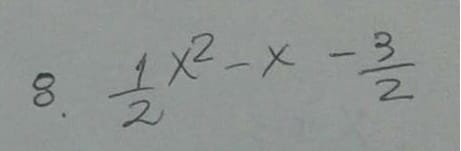 8. 1/2 x² - x - 3/2